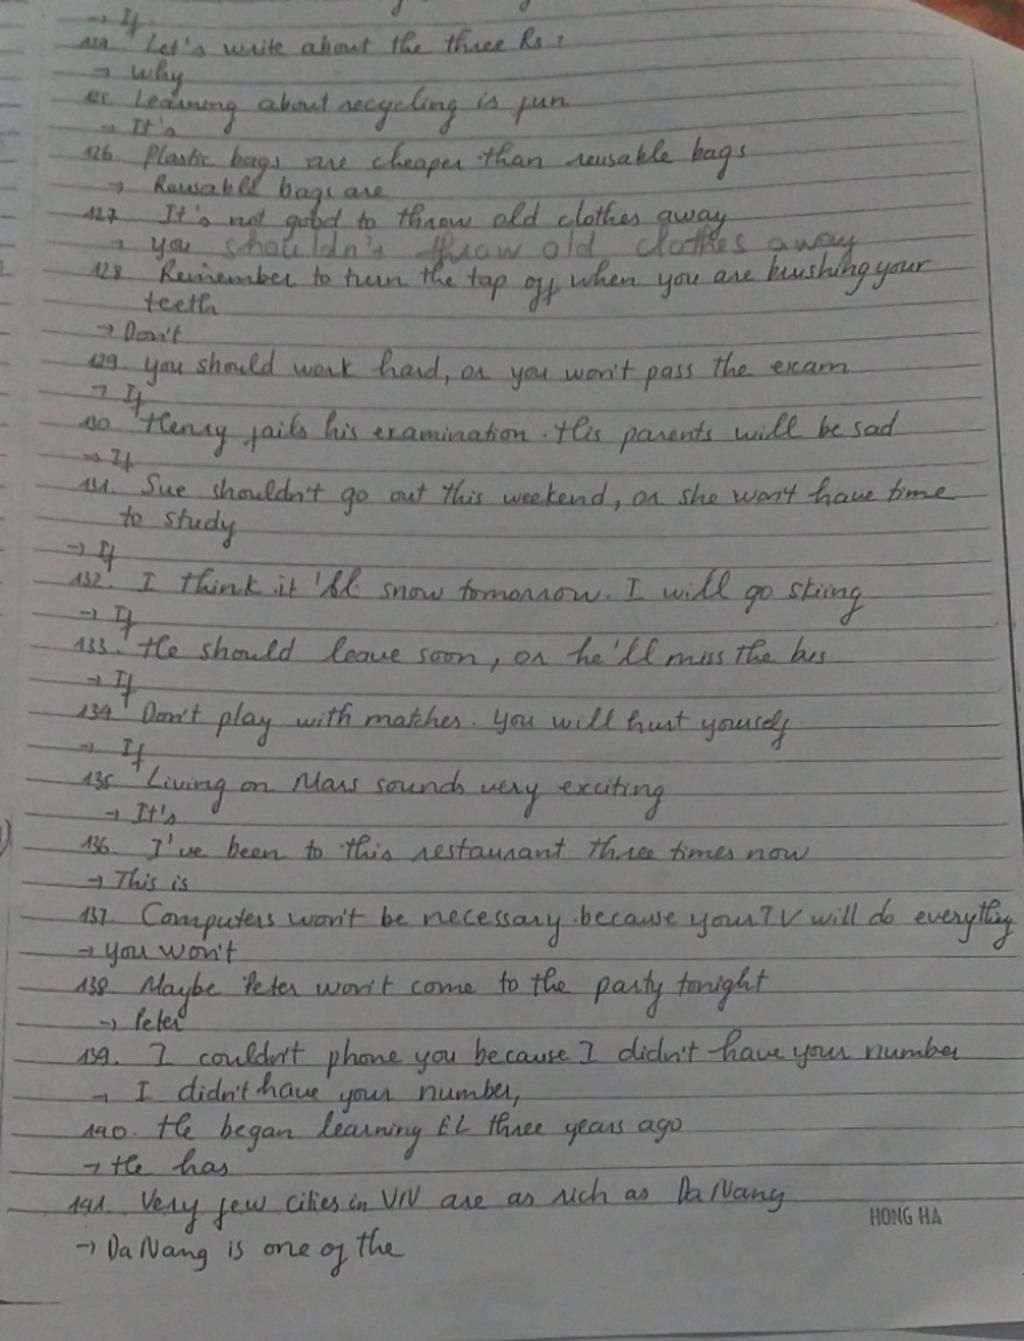 → If
124. Let's write about the three Rs.
→ Why
125. Learning about recycling is fun
→ It's
126. Plastic bags are cheaper than reusable bags
→ Reusable bags are
127. It's not good to throw old clothes away
→ you shouldn't throw old clothes away
128. Remember to turn the tap off when you are brushing your
teeth
→ Don't
129. you should work hard, or you won't pass the exam
→ If
130. Henry fails his examination. His parents will be sad
→ If
131. Sue shouldn't go out this weekend, or she won't have time
to study
→ If
132. I think it 'll snow tomorrow. I will go skiing
→ If
133. He should leave soon, or he'll miss the bus
→ If
134 Don't play with matches. You will hurt yourself
→ If
135 Living on Mars sounds very exciting
→ It's
136. I've been to this restaurant three times now
→ This is
137. Computers won't be necessary because your TV will do everything
→ you won't
138 Maybe Peter won't come to the party tonight
→ Peter
139. I couldn't phone you because I didn't have your number
→ I didn't have your number,
140. He began learning EL three years ago
→ He has
141. Very few cities in VN are as rich as Da Nang
HONG HA
→ Da Nang is one of the